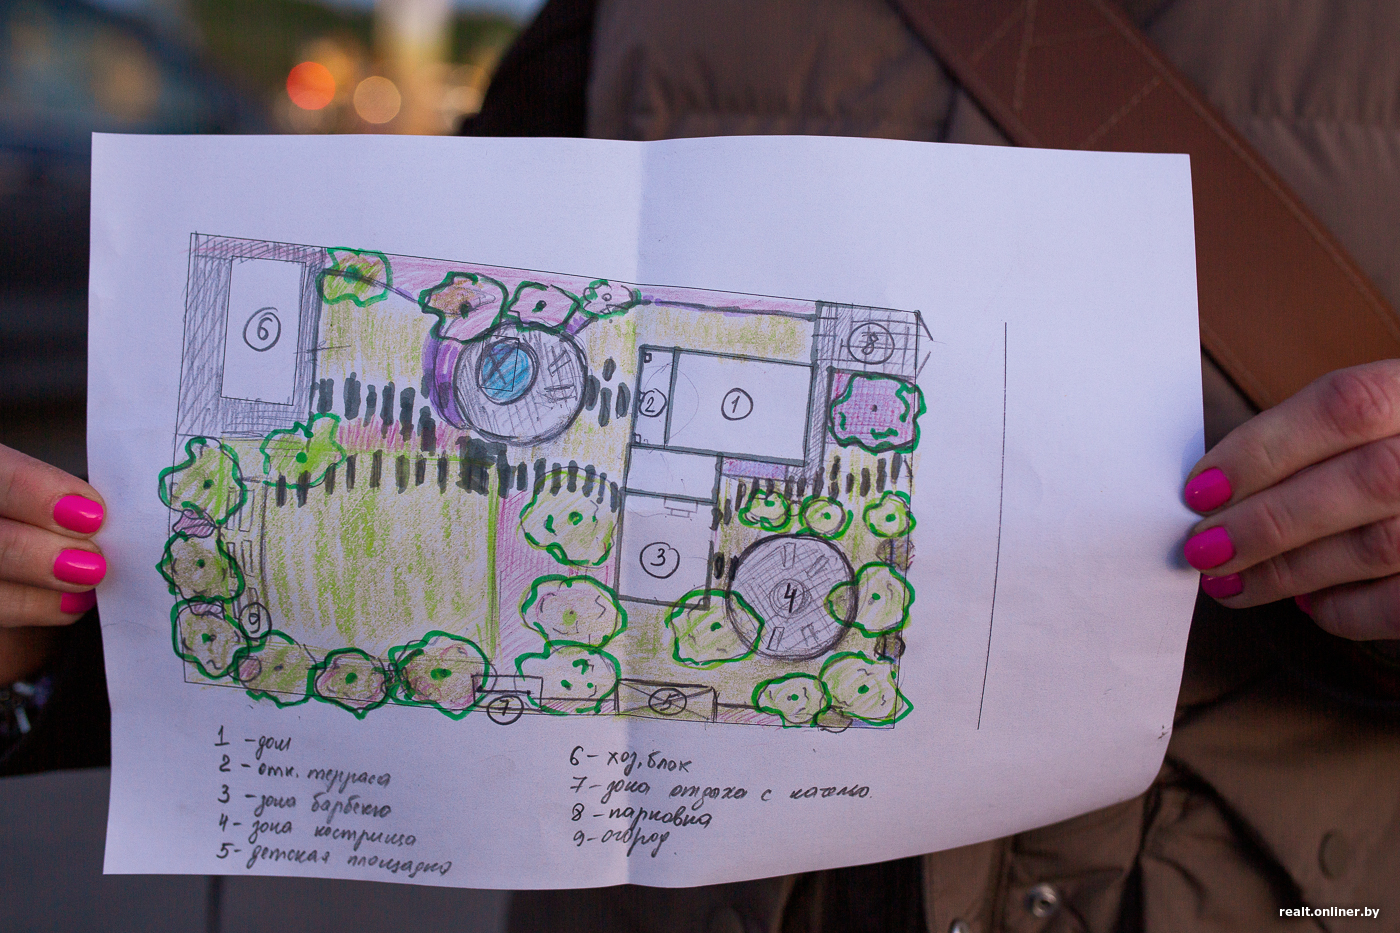 6
8
2
1
3
4
9
7
5
1 - дом
2 - отк. терраса
3 - зона барбекю
4 - зона кострища
5 - детская площадка
6 - хоз. блок
7 - зона отдыха с качелью.
8 - парковка
9 - огород.
realt.onliner.by